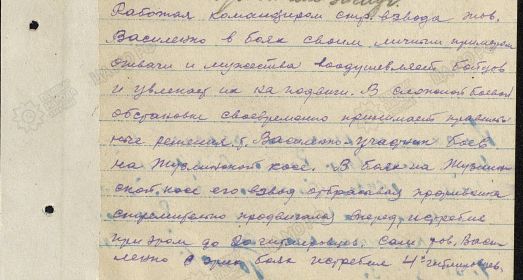 Работая командиром стр. взвода тов.
Василенко в боях своим личным примером
отваги и мужества воодушевляет бойцов
и увлекает их на подвиги. В сложной боевой
обстановке своевременно принимает правиль
ные решения т. Василенко участник боев
на косе. В боях на
ской косе его взвод отбрасывая противника
стремительно продвигался вперед истребив
при этом до 20 гитлеровцев, сам тов. Васи
ленко в этих боях истребил 4х гитлеровцев.